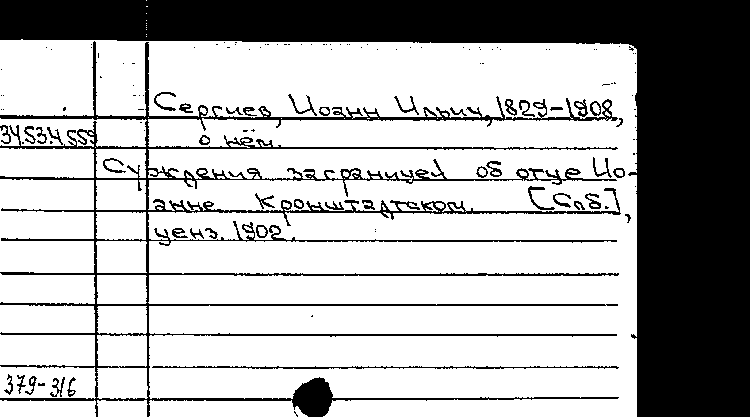 Сергиев, Иоанн Ильич, 1829-1908,
34.53.4.559 о нём.
Суждения заграницей об отце Ио-
анне Кронштадтском. [Спб.],
ценз. 1902.
379-316